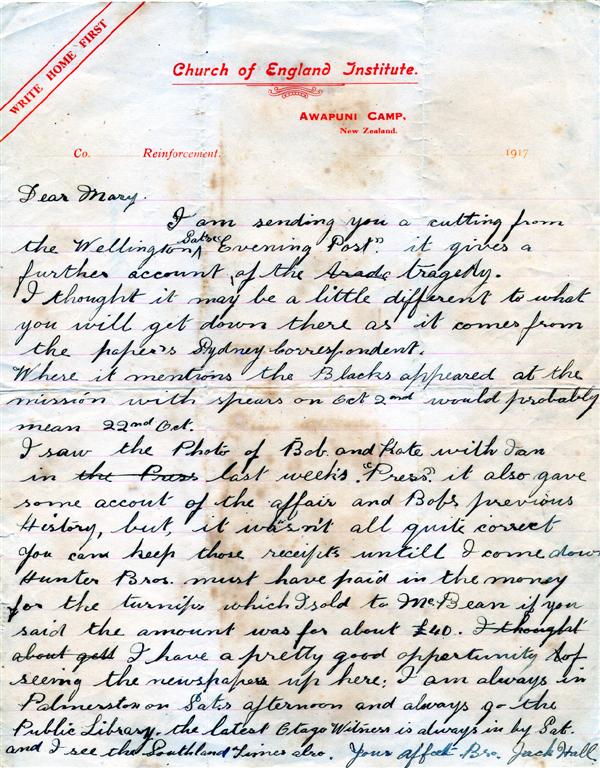 WRITE HOME FIRST
Church of England Institute.
AWAPUNI CAMP,
New Zealand.
Co. Reinforcement. 1917
Dear Mary.
I am sending you a cutting from
the Wellington Sat's "Evening Post". it gives a
further account of the tragedy.
I thought it may be a little different to what
you will get down there as it comes from
the paper's Sydney Correspondent.
Where it mentions the Blacks appeared at the
mission with spears on Oct 2nd would probably
mean 22nd Oct.
I saw the Photo of Bob and Kate with Ian
in the Press last weeks "Press". it also gave
some accout of the affair and Bobs previous
History, but, it wasn't all quite correct
You can keep those receipts untill I come down
Hunter Bros. must have paid in the money
for the turnips which I sold to McBean if you
said the amount was for about £40. I thought
about gett I have a pretty good opportunity of
seeing the newspapers up here; I am always in
Palmerston on Sat's afternoon and always go the
Public Library. the latest Otago Witness is always in by Sat.
and I see the Southland Times also. Your affect Bro. Jack Hall